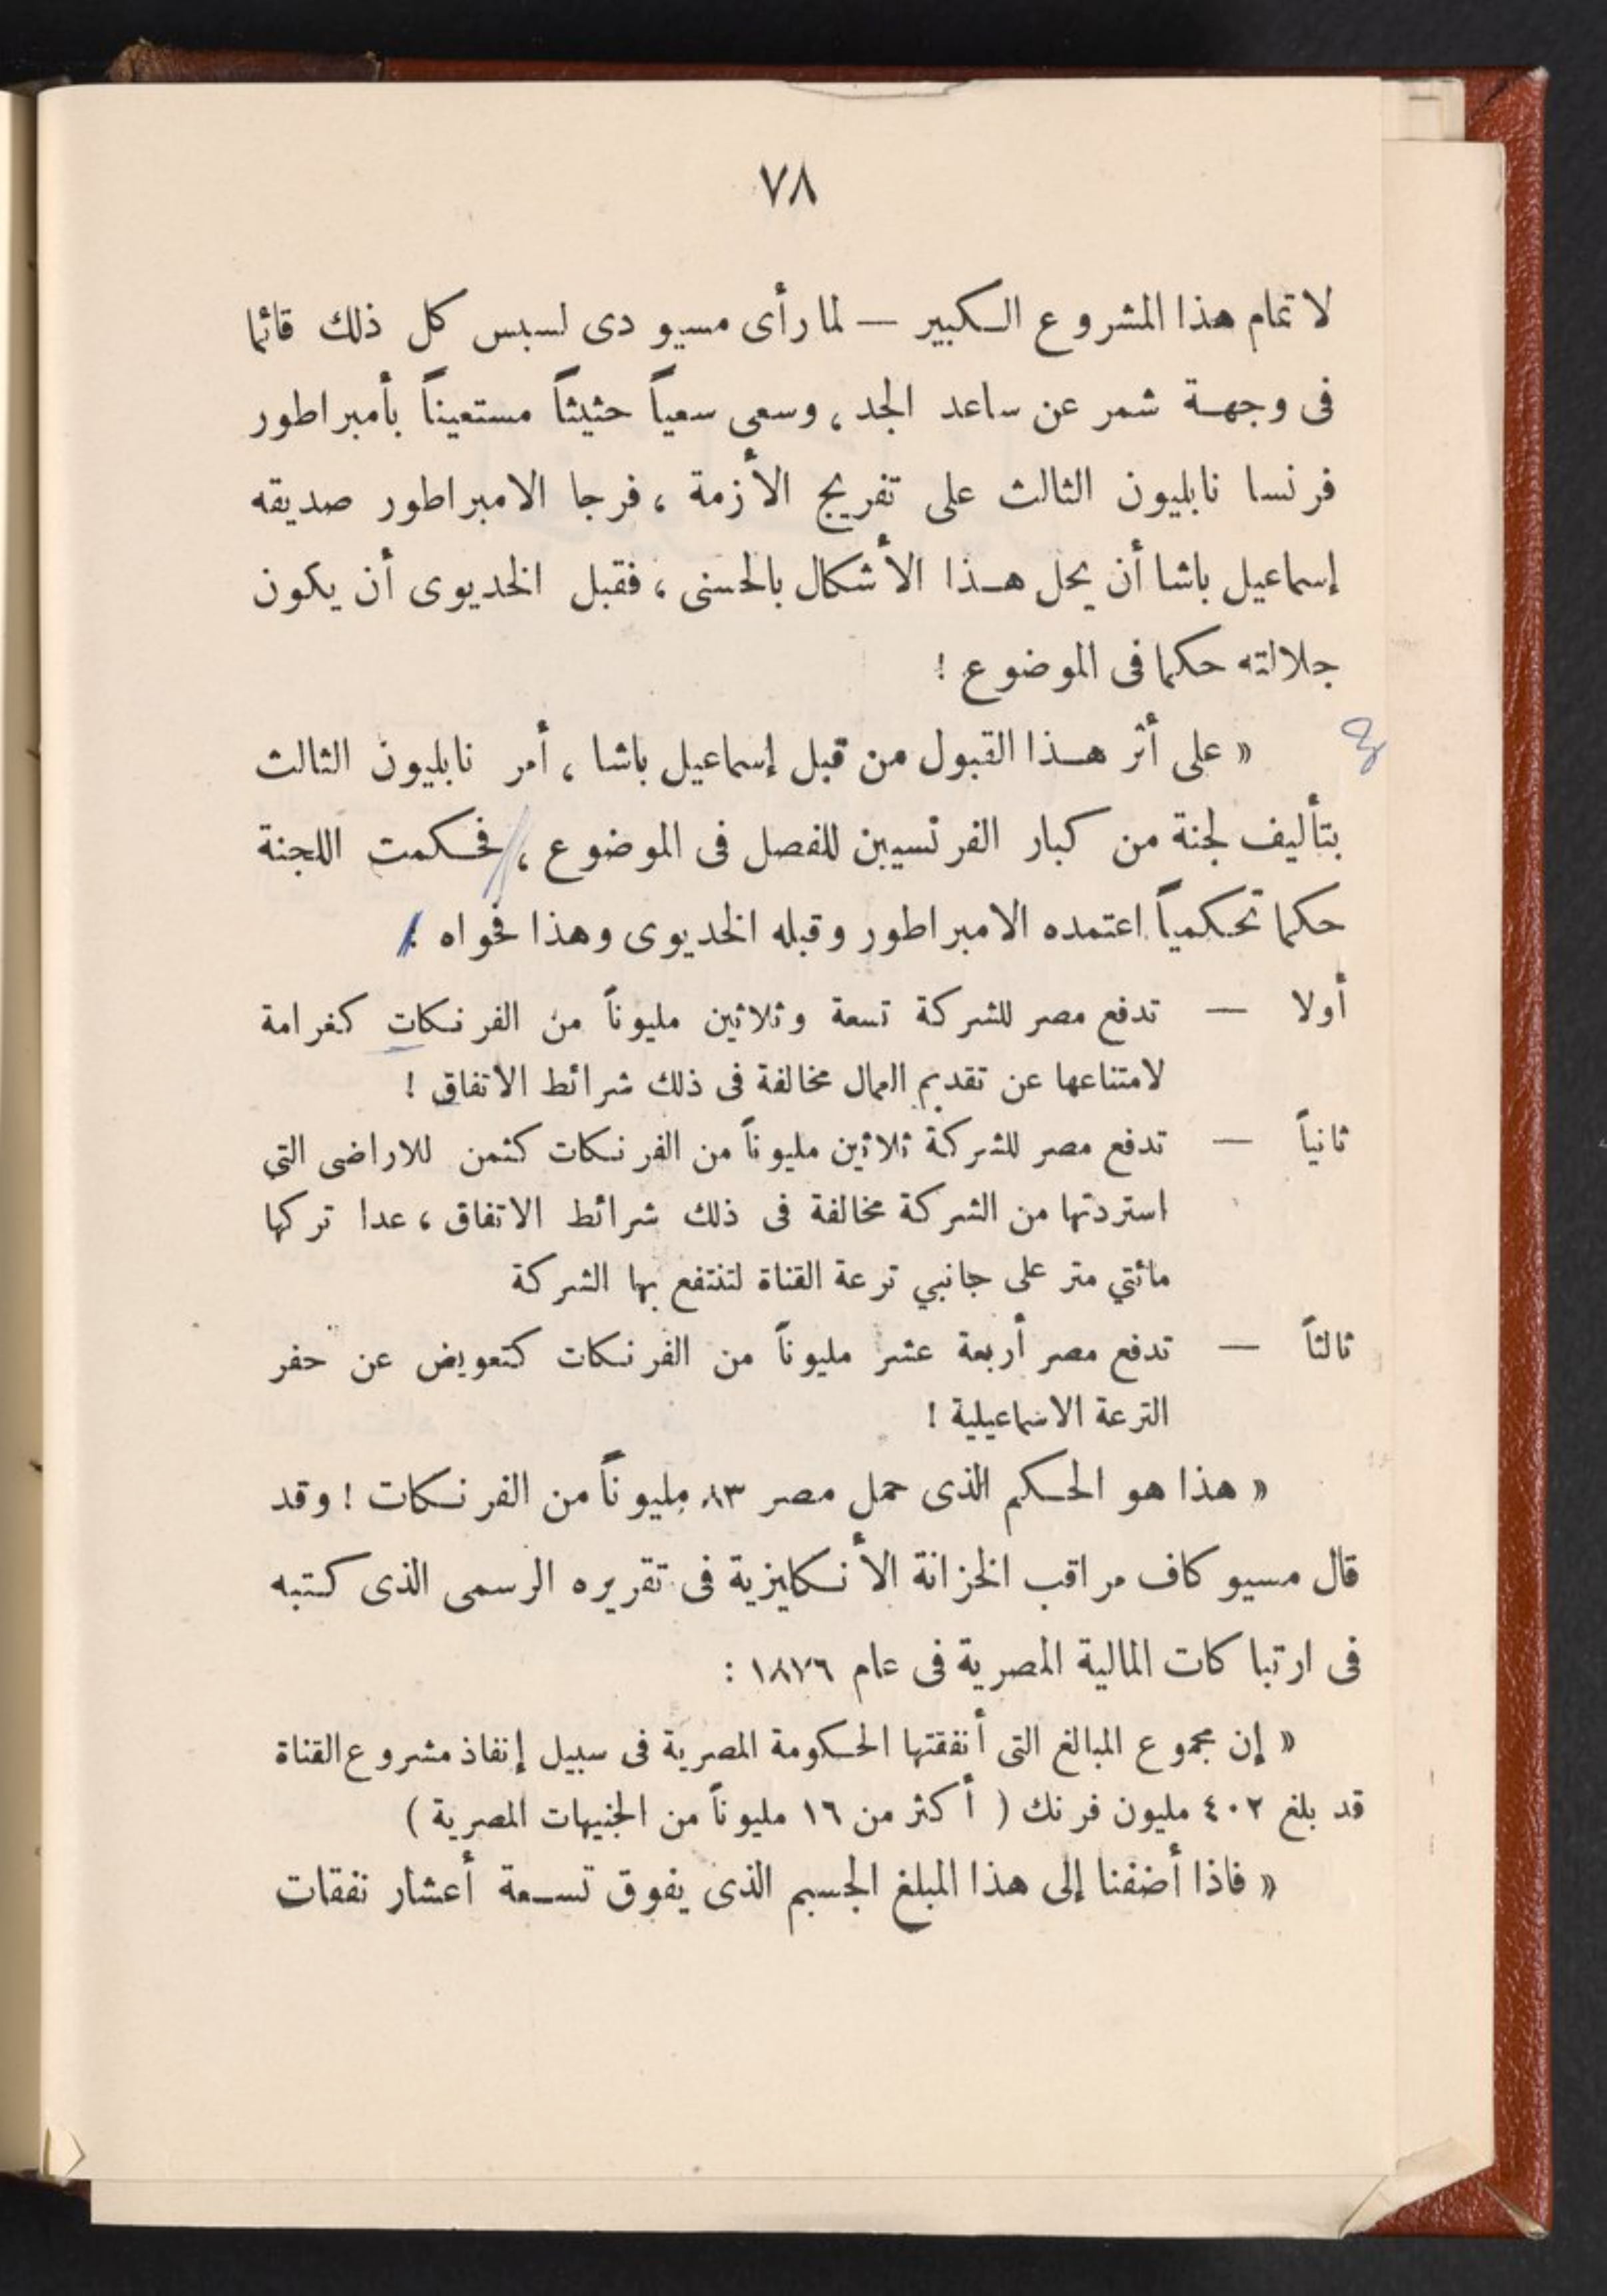 ٧٨
لا تمام هذا المشروع الكبير — لما رأى مسيو دى لسبس كل ذلك قائما
فى وجهة شمر عن ساعد الجد ، وسعى سعياً حثيثاً مستعيناً بأمبراطور
فرنسا نابليون الثالث على تفريج الأزمة ، فرجا الامبراطور صديقه
إسماعيل باشا أن يحل هذا الأشكال بالحسنى ، فقبل الخديوى أن يكون
جلالته حكما فى الموضوع !
« على أثر هذا القبول من قبل إسماعيل باشا ، أمر نابليون الثالث
بتأليف لجنة من كبار الفرنسيين للفصل فى الموضوع ، فحكمت اللجنة
حكما تحكمياً اعتمده الامبراطور وقبله الخديوى وهذا فحواه :
أولا — تدفع مصر للشركة تسعة وثلاثين مليوناً من الفرنكات كغرامة
لامتناعها عن تقديم العمال مخالفة فى ذلك شرائط الاتفاق !
ثانياً — تدفع مصر للشركة ثلاثين مليوناً من الفرنكات كثمن للاراضى التى
استردتها من الشركة مخالفة فى ذلك شرائط الاتفاق ، عدا تركها
مائتي متر على جانبي ترعة القناة لتنتفع بها الشركة
ثالثاً — تدفع مصر أربعة عشر مليوناً من الفرنكات كتعويض عن حفر
الترعة الاسماعيلية !
« هذا هو الحكم الذى حمل مصر ٨٣ مليوناً من الفرنكات ! وقد
قال مسيو كاف مراقب الخزانة الأنكليزية فى تقريره الرسمى الذى كتبه
فى ارتباكات المالية المصرية فى عام ١٨٧٦ :
« إن مجموع المبالغ التى أنفقتها الحكومة المصرية فى سبيل إنفاذ مشروع القناة
قد بلغ ٤٠٢ مليون فرنك ( أكثر من ١٦ مليوناً من الجنيهات المصرية )
« فاذا أضفنا إلى هذا المبلغ الجسيم الذى يفوق تسعة أعشار نفقات